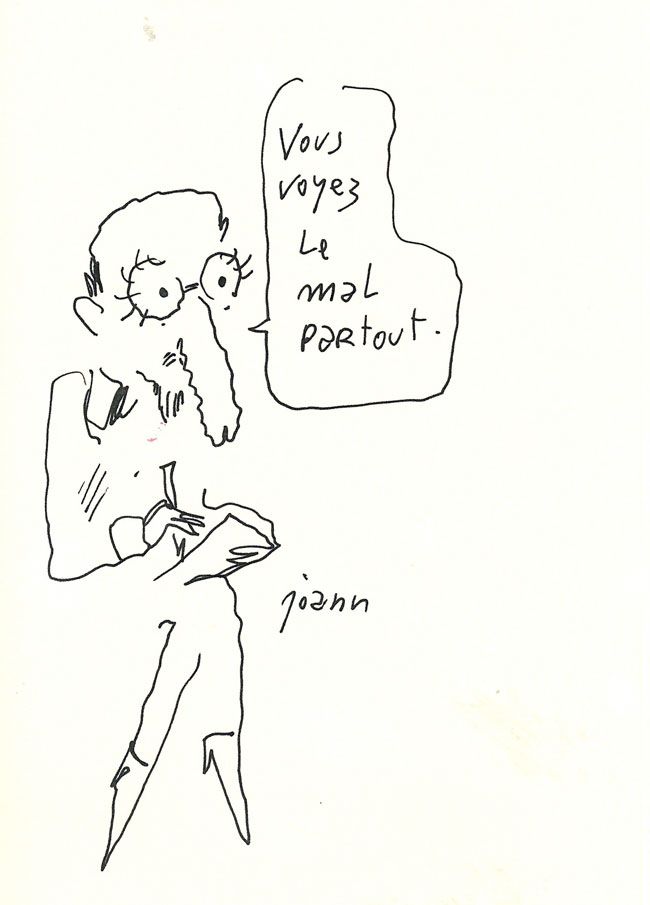 Vous
voyez
Le
maL
partout.
joann